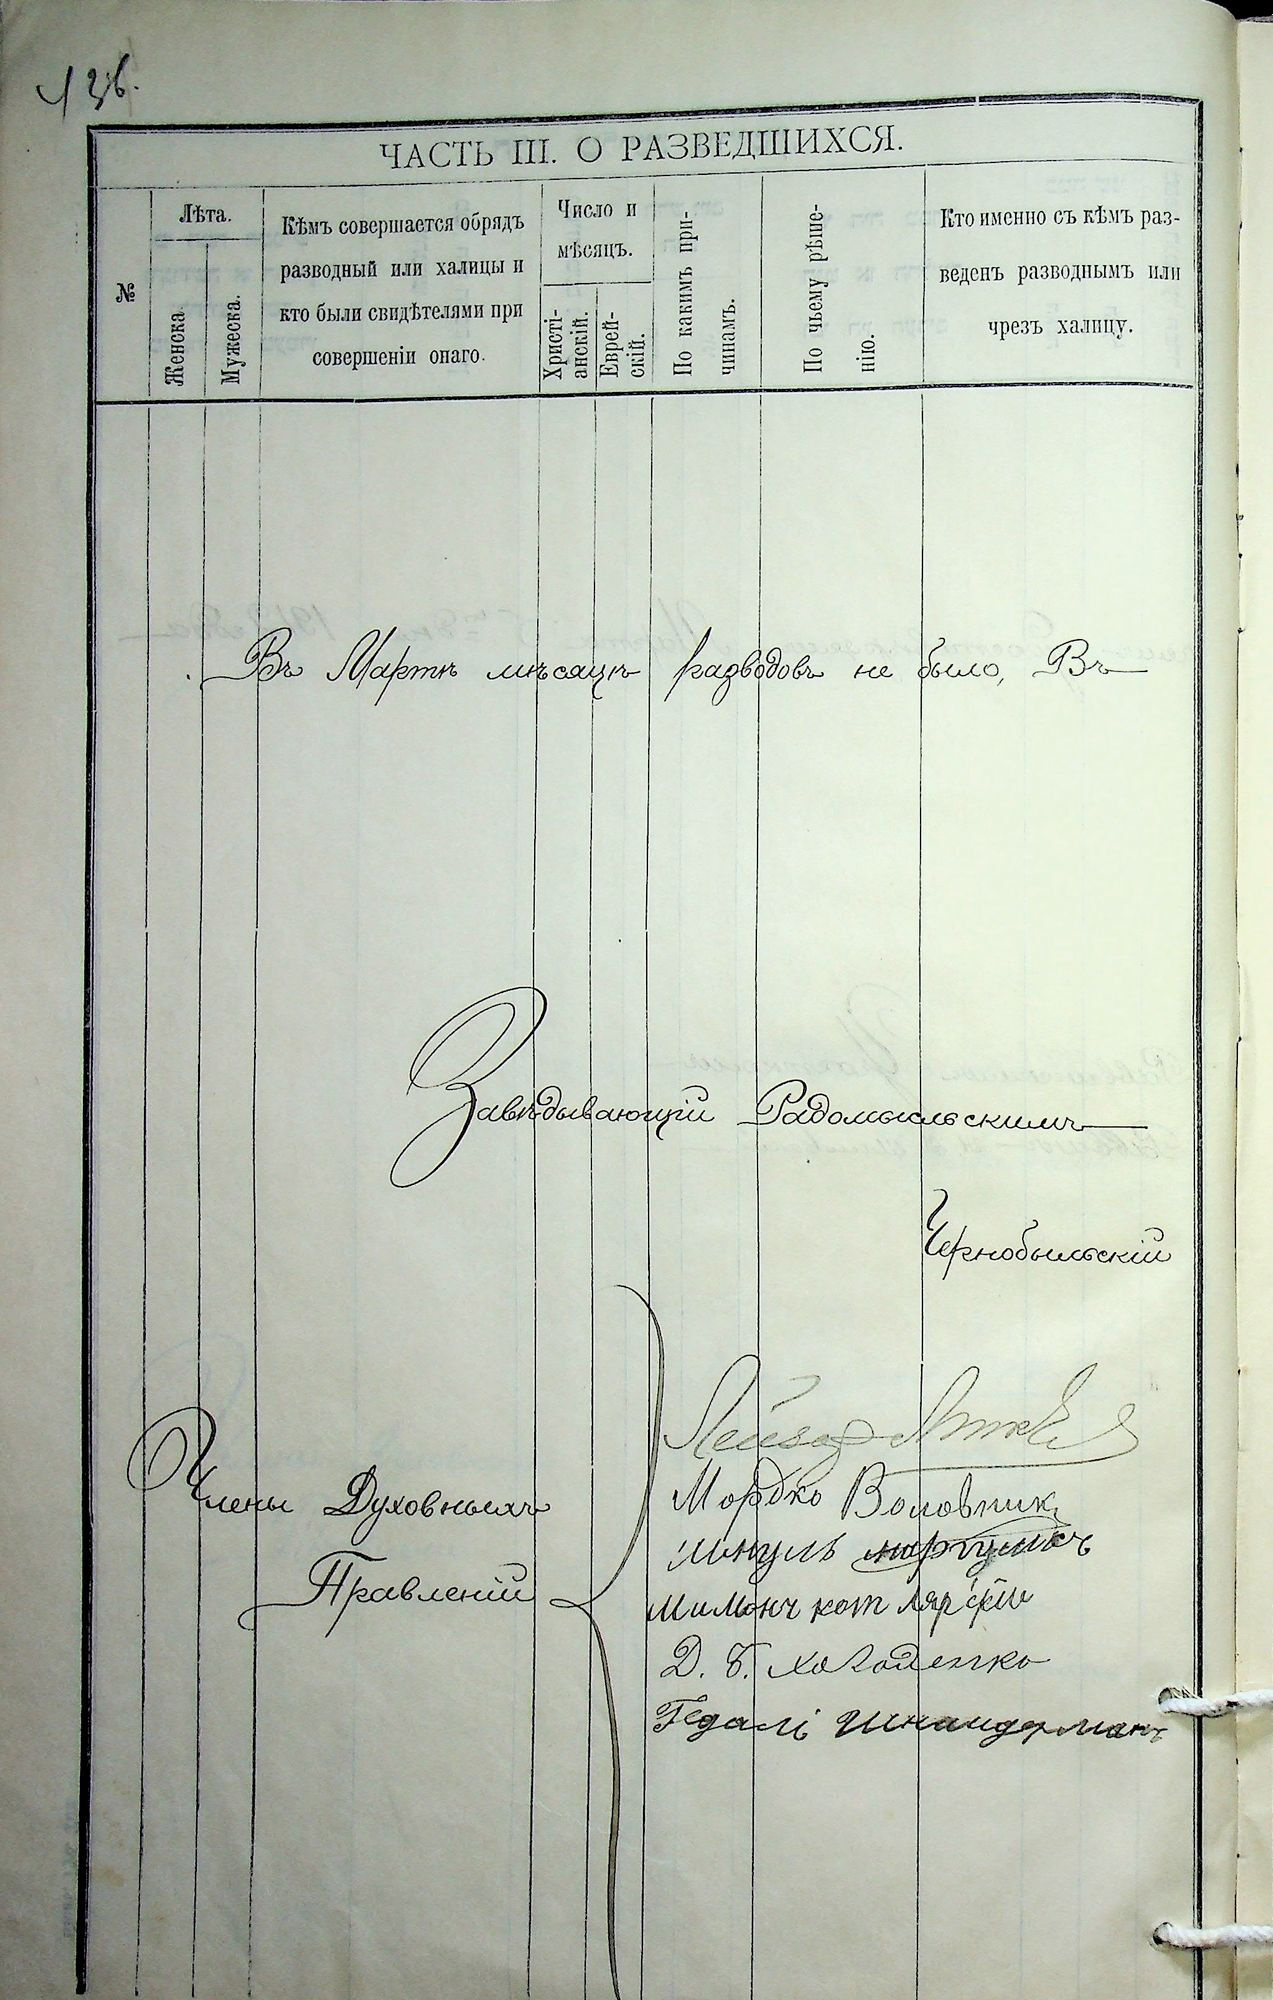 ЧАСТЬ III. О РАЗВЕДШИХСЯ.
№
Лѣта.
Женска.
Мужеска.
Кѣмъ совершается обрядъ
разводный или халицы и
кто были свидѣтелями при
совершеніи онаго.
Число и
мѣсяцъ.
Христі-
анскій.
Еврей-
скій.
По какимъ при-
чинамъ.
По чьему рѣше-
нію.
Кто именно съ кѣмъ раз-
веденъ разводнымъ или
чрезъ халицу.
Въ Мартѣ мѣсяцѣ разводовъ не было, Въ
Завѣдывающій Радомысльскимъ
Чернобыльскій
Члены Духовныхъ
Правленій
Лейзоръ
Мордко Воловник
Д. Б. Ходоленко
Гедалі Шнайдерманъ